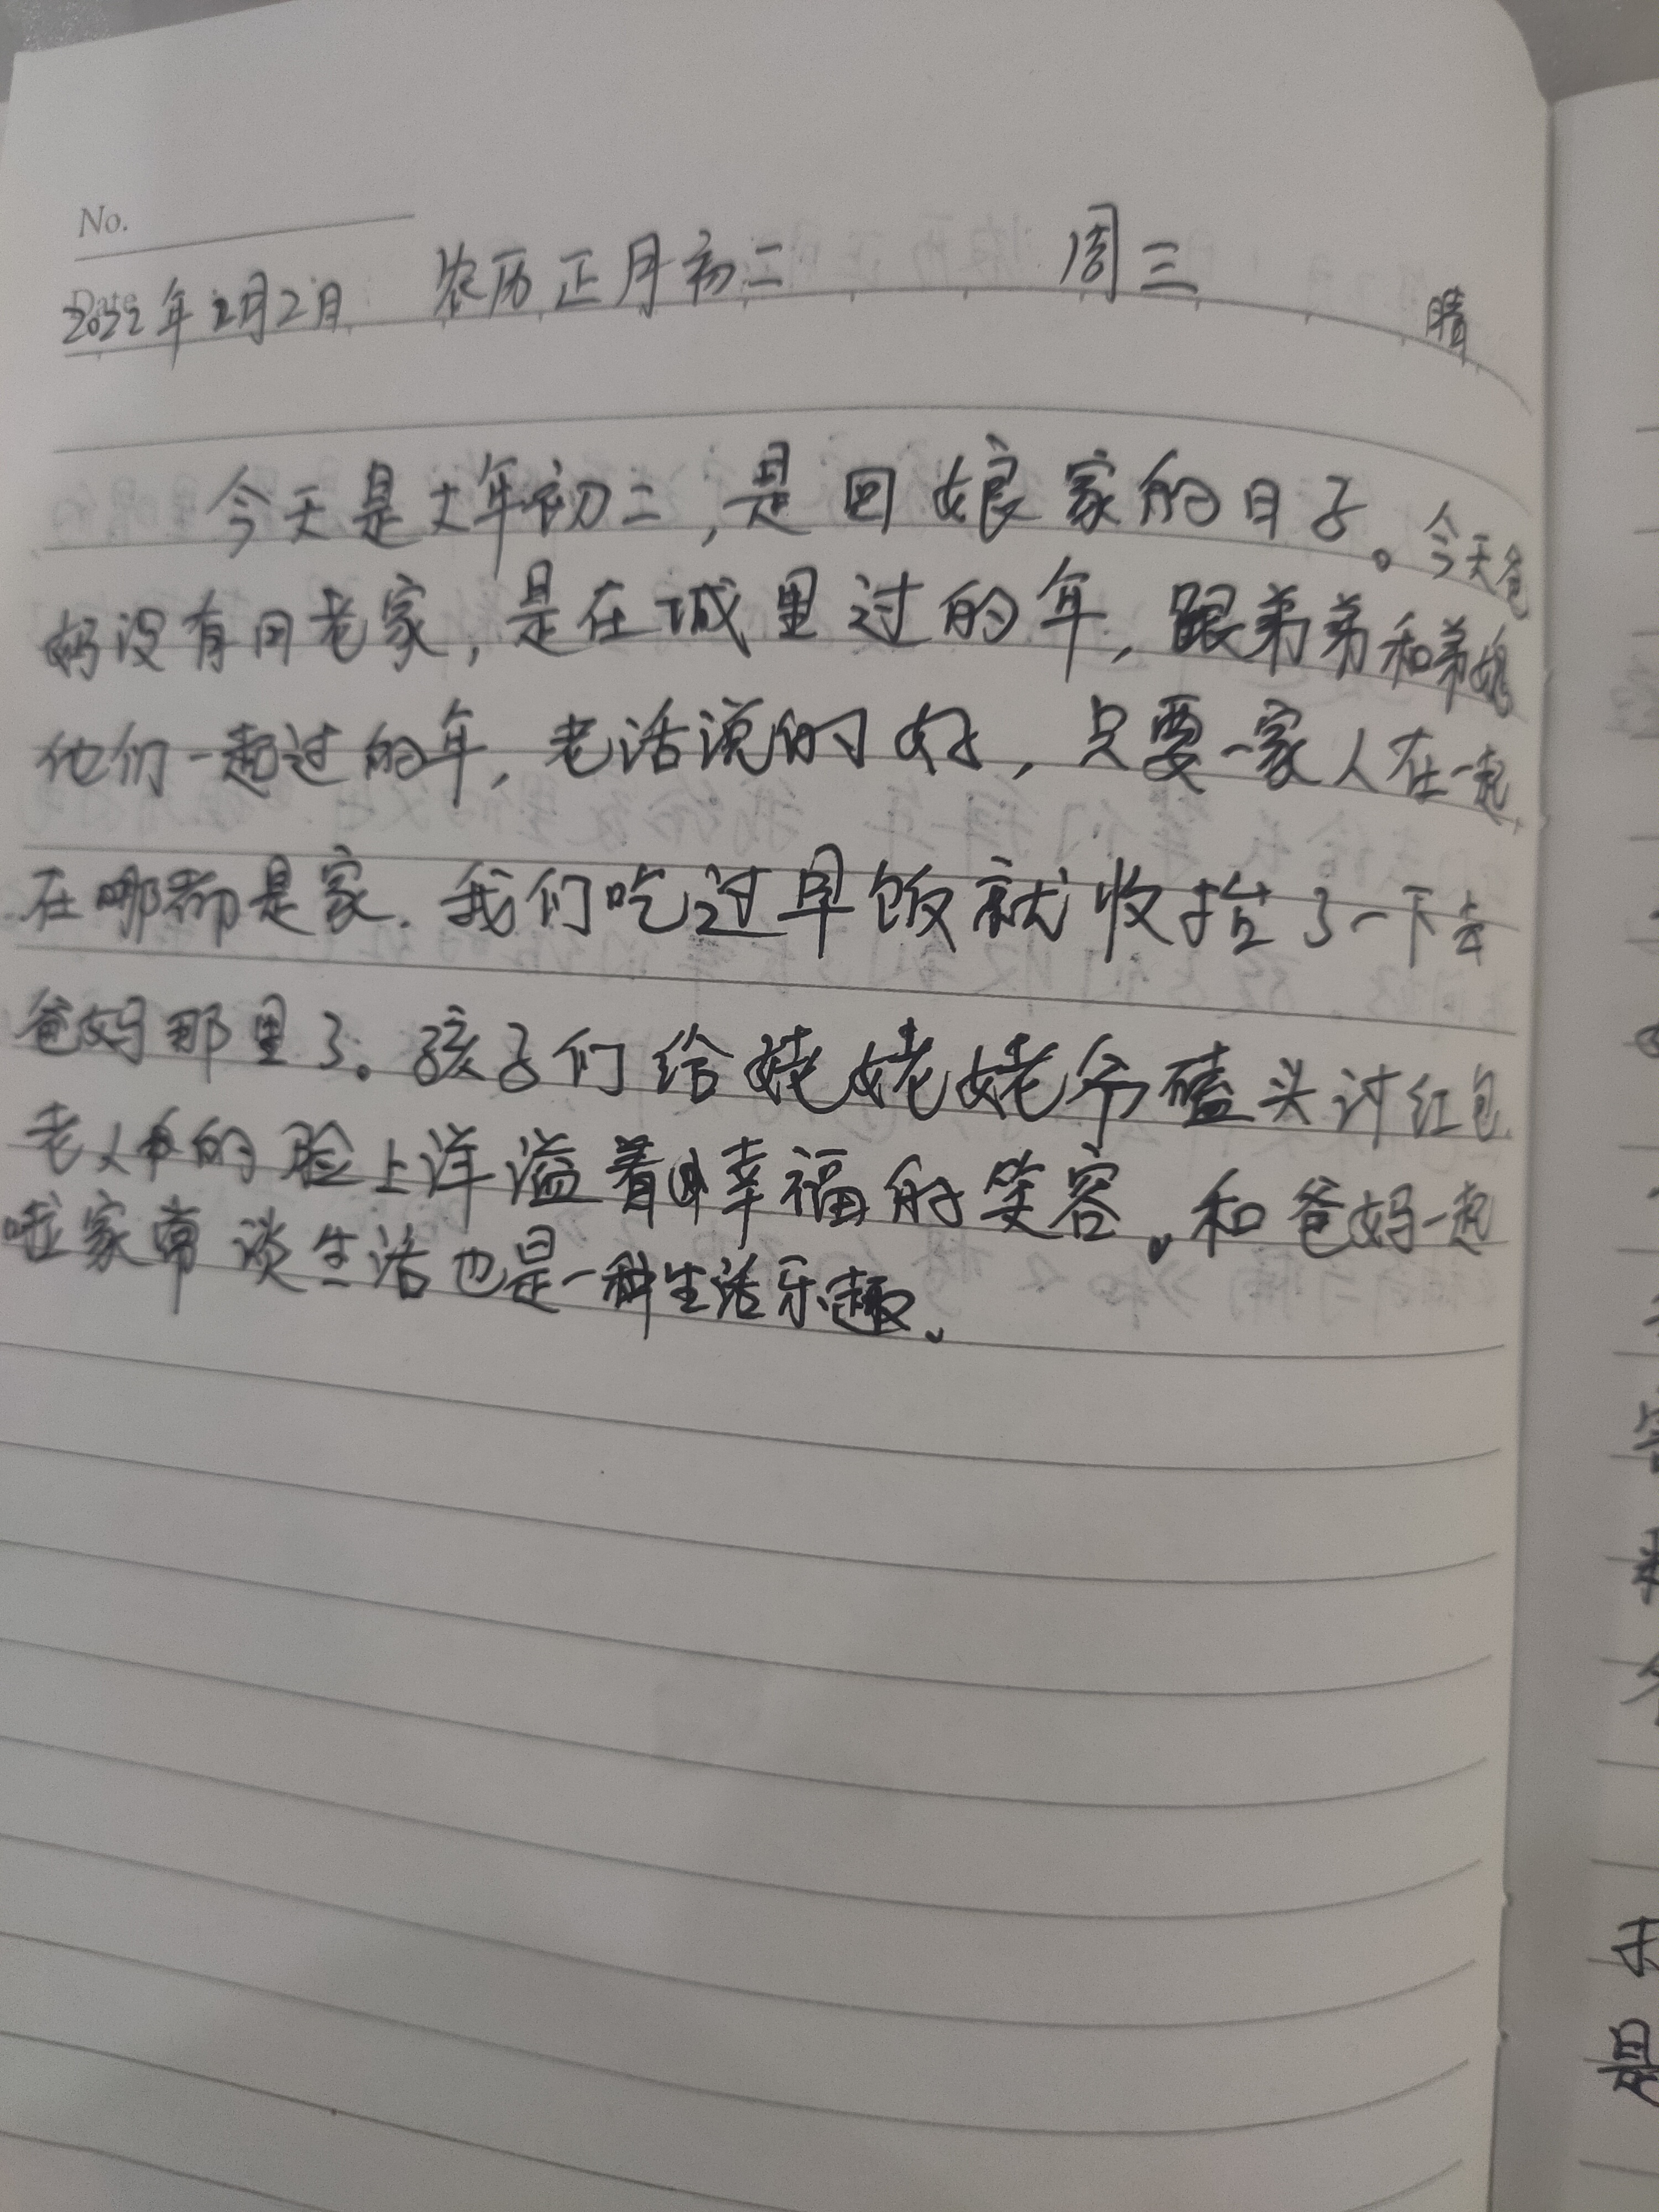 No.
Date
2022年2月2日 农历正月初二 周三 晴
今天是大年初二,是回娘家的日子。今天爸
妈没有回老家,是在城里过的年,跟弟弟和弟媳
他们一起过的年,老话说的好,只要一家人在一起,
在哪都是家.我们吃过早饭就收拾了一下去
爸妈那里了。孩子们给姥姥姥爷磕头讨红包
老人的脸上洋溢着幸福的笑容。和爸妈一起
啦家常谈生活也是一种生活乐趣。
是